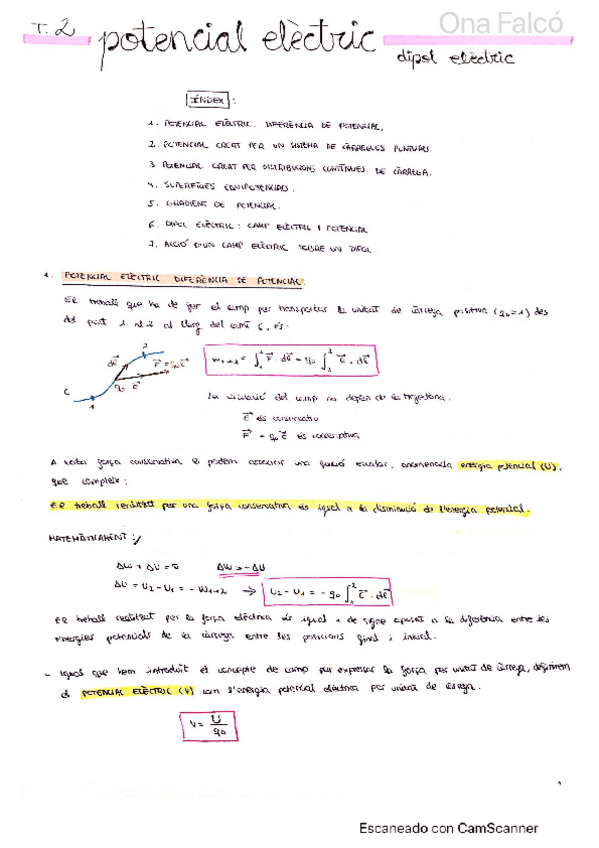 Ona Falcó
T.2 potencial elèctric
dipol elèctric
ÍNDEX:
1. POTENCIAL ELÈCTRIC. DIFERÈNCIA DE POTENCIAL.
2. POTENCIAL CREAT PER UN SISTEMA DE CÀRREGUES PUNTUALS
3. POTENCIAL CREAT PER DISTRIBUCIONS CONTÍNUES DE CÀRREGA.
4. SUPERFÍCIES EQUIPOTENCIALS.
5. GRADIENT DE POTENCIAL.
6. DIPOL ELÈCTRIC: CAMP ELÈCTRIC I POTENCIAL
7. ACCIÓ D'UN CAMP ELÈCTRIC SOBRE UN DIPOL
1. POTENCIAL ELÈCTRIC DIFERÈNCIA DE POTENCIAL.
El treball que ha de fer el camp per transportar la unitat de càrrega positiva (q₀=1) des
del punt 1 al 2 al llarg del camí C, és:
2
dℓ F = q₀E
q₀ E
C
1
W1→2 = ∫₁² F · dℓ = q₀ ∫₁² E · dℓ
La circulació del camp no depèn de la trajectòria.
E és conservatiu
F = q₀E és conservativa
A tota força conservativa li podem associar una funció escalar, anomenada energia potencial (U),
que compleix:
El treball realitzat per una força conservativa és igual a la disminució de l'energia potencial.
MATEMÀTICAMENT:
ΔW + ΔU = 0 ΔW = -ΔU
ΔU = U2 - U1 = -W1→2 → U2 - U1 = -q₀ ∫₁² E · dℓ
El treball realitzat per la força elèctrica és igual i de signe oposat a la diferència entre les
energies potencials de la càrrega entre les posicions final i inicial.
- Igual que hem introduït el concepte de camp per expressar la força per unitat de càrrega, definirem
el POTENCIAL ELÈCTRIC (V) com l'energia potencial elèctrica per unitat de càrrega.
V = U / q₀
1
Escaneado con CamScanner